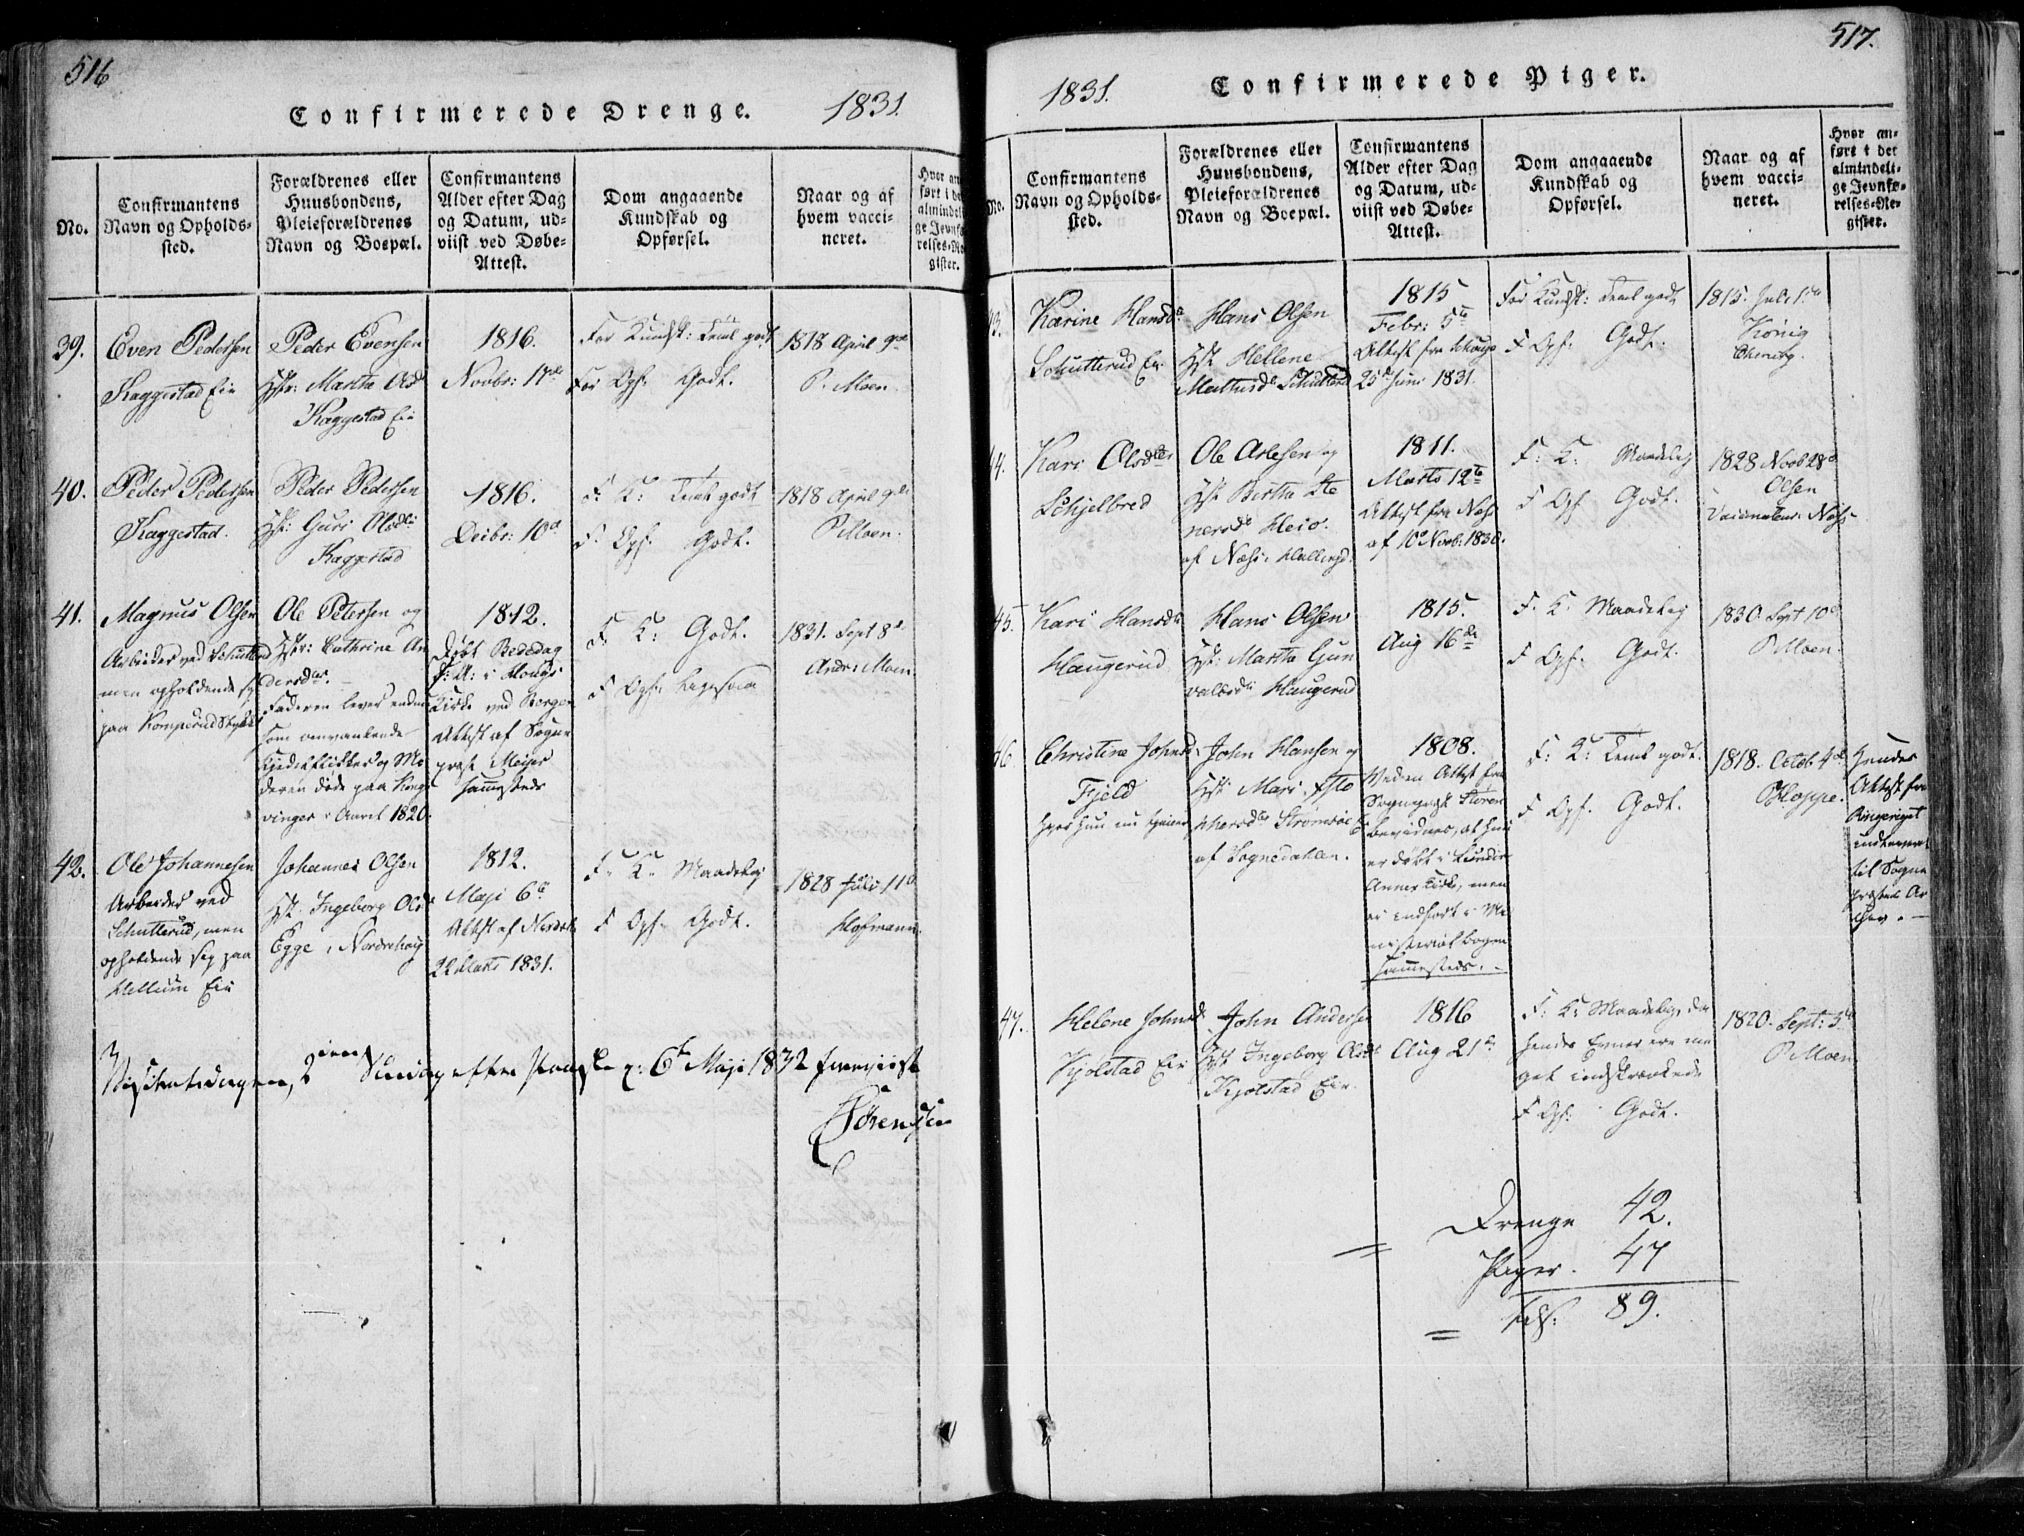 516
Confirmerede Drenge.
1831.
No.
Confirmantens
Navn og Opholds-
sted.
Forældrenes eller
Huusbondens,
Pleieforældrenes
Navn og Boepæl.
Confirmantens
Alder efter Dag
og Datum, ud-
viist ved Døbe-
Attest.
Dom angaaende
Kundskab og
Opførsel.
Naar og af
hvem vacci-
neret.
Hvor an
ført i de
almindeli
ge Jevnfø
relses-Re
gister.
39.
Even Pedersen
Kaggestad Eie
Peder Evensen
Hst: Martha
Kaggestad Eie
1816.
Novbr: 17de
For Kundsk: Teml godt
For Opf: Godt.
1818 April 9de
P. Moen.
40.
Peder Pedersen
Kaggestad.
Peder Pedersen
Hst: Guri Olsdtr
Kaggestad
1816.
Decbr: 10de
F: K: Teml godt
F: Opf: Godt.
1818 April 9de
P. Moen.
41.
Magnus Olsen
Arbeider ved Schutterud
men opholdende sig
paa
Ole Petersen og
Hstr: Cathrine An
dersdtr. -
Faderen lever endnu
som omvankende
og Mo
deren døde paa Kongs
vinger i Aaret 1820.
1812.
Døbt Bededag
i Hougs
Kirke ved Bergen
Attest af Sogne
præst Meijer
sammesteds
F. K: Godt.
F Opf:
1831. Sept 8de
Andr: Moen
42.
Ole Johannesen
Arbeider ved
Schutterud, men
opholdende sig paa
Hellum Eie
Johannes Olsen
Hst: Ingeborg Olsdtr
Egge i Norderhoug
1812.
Maji 6te
Attest af Norderh
22 Marts 1831.
F. K. Maadelig
F Opf: Godt.
1828 Juli 11te
Hofmann.
Visitatsdagen, 2den Søndag efter Paaske 6te Maji 1832 foreviist
Sørensen
517.
1831.
Confirmerede Piger.
No.
Confirmantens
Navn og Opholds-
sted.
Forældrenes eller
Huusbondens,
Pleieforældrenes
Navn og Boepæl.
Confirmantens
Alder efter Dag
og Datum, ud-
viist ved Døbe-
Attest.
Dom angaaende
Kundskab og
Opførsel.
Naar og af
hvem vacci-
neret.
Hvor an-
ført i det
almindeli-
ge Jevnfø-
relses-Re-
gister.
43.
Karine Hansdtr
Schutterud Eie
Hans Olsen
Hst Hellene
Mathisdtr Schutterud
1815
Febr: 5te
Attest fra
25de Juni 1831.
For Kundsk: Teml godt
F Opf: Godt.
1815. Juli 1ste
König
44.
Kari Olsdtr
Schjelbred
Ole Arlesen og
Hst Bertha Ste
nersdtr Heio
af Næss i Hallingd.
1811.
Marts 12te
Attest fra Næss
af 10de Novb: 1830.
F. K: Maadelig
F Opf Godt.
1828 Novb 28de
Olsen
Vaccinateur i Næss
45.
Kari Hansdtr
Haugerud
Hans Olsen
Hst: Martha Gun
valdsdtr Haugerud
1815.
Aug 16de
F. K: Maadelig
F Opf: Godt.
1830. Sept 10de
P. Moen.
46
Christine Johnsdtr
Fjeld
hvor hun nu tjener
John Hansen og
Hst: Mari
Strømsøe Eie
af Sognedahlen.
1808.
Veden Attest fra
Sognepræst
bevidnes, at hun
er døbt i Lunder
Annex Kirke, men
ei indført i Mi
nisterial bogen
sammesteds. -
F: K: Teml godt.
F Opf: Godt.
1818. Octob 4de
Hoppe.
Hendes
Attest fra
Ringeriget
indleveret
til Sogne
præsten Ar
47.
Helene Johnsdtr
Kjølstad Eie
John Andersen
Hst Ingeborg Olsdtr
Kjølstad Eie.
1816
Aug 21de
F: K: Maadelig, da
hendes Evner ere me
get indskrænkede
F Opf: Godt.
1820. Sept: 5te
P. Moen
Drenge 42.
Piger. 47
89.